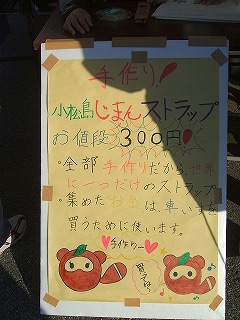 手作り!
小松島じまんストラップ
お値段300円!
・全部手作りだから世界
に一つだけのストラップ
・集めたお金は、車いすを
買うために使います。
手作り〜
買ってね